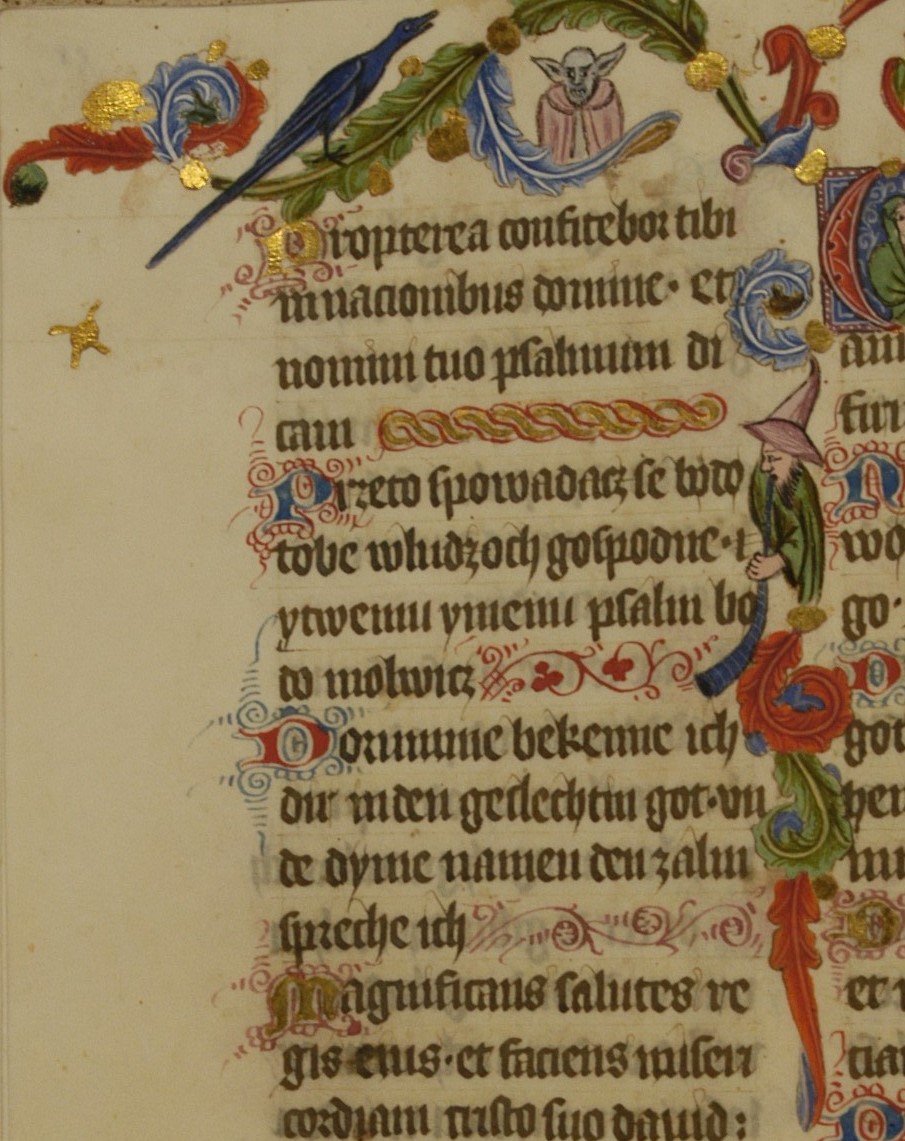 Propterea confitebor tibi
innacionibus domine · et
nomini tuo psalmum di
cam
Przeto spowadacz se bødø
tobe wludzoch gospodne · i
ytwemu ymenu psalm bø
dø molwicz
Dorumme bekenne ich
dir inden geslechtin got · vn
de dyme namen den zalm
spreche ich
Magnificans salutes re
gis eius · et faciens miseri
cordiam cristo suo dauid :
wo
go ·
got
et